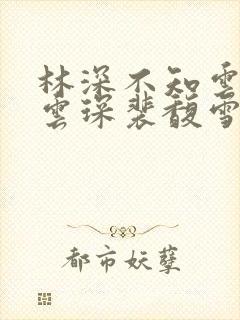 林深不知雲
雲琛裴馥雪
都市妖孽